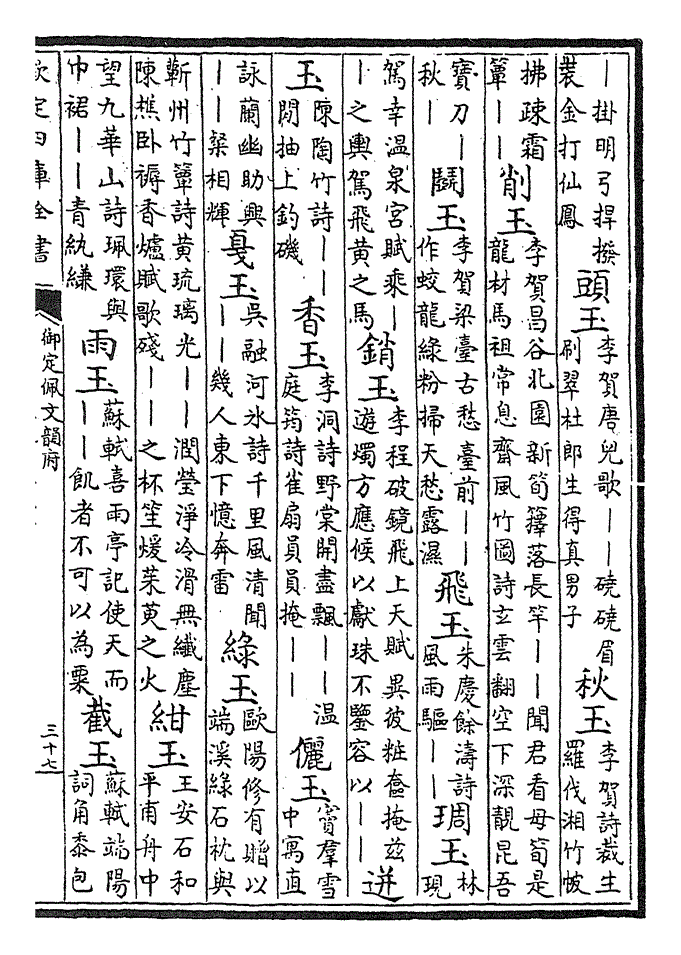 ｜掛明弓捍撥
裝金打仙鳳
頭玉
李賀唐兒歌｜｜磽磽眉
刷翠杜郎生得真男子
秋玉
李賀詩裁生
羅伐湘竹帔
拂疎霜
簟｜｜
削玉
李賀昌谷北園新筍籜落長竿｜｜聞君看母筍是
龍材馬祖常息齋風竹圖詩玄雲翻空下深靚昆吾
寶刀｜
秋｜
鬭玉
李賀梁臺古愁臺前｜｜
作蛟龍綠粉掃天愁露濕
飛玉
朱慶餘濤詩
風雨驅｜｜
琱玉
林
現
駕幸温泉宮賦乘｜
｜之輿駕飛黄之馬
銷玉
李程破鏡飛上天賦異彼粧奩掩兹
遊燭方應候以獻珠不鑒容以｜｜
迸
玉
陳陶竹詩｜｜
閒抽上釣磯
香玉
李洞詩野棠開盡飄｜｜温
庭筠詩雀扇員員掩｜｜
儷玉
竇羣雪
中寓直
詠蘭幽助興
｜｜粲相輝
戛玉
吳融河冰詩千里風清聞
｜｜幾人東下憶奔雷
綠玉
歐陽修有贈以
端溪綠石枕與
蘄州竹簟詩黄琉璃光｜｜潤瑩淨冷滑無纖塵
陳樵卧褥香爐賦歌殘｜｜之杯笙煖茱萸之火
紺玉
王安石和
平甫舟中
望九華山詩珮環與
巾裙｜｜青紈縑
雨玉
蘇軾喜雨亭記使天而
｜｜飢者不可以為粟
截玉
蘇軾端陽
詞角黍包
欽定四庫全書
御定佩文韻府
三十七